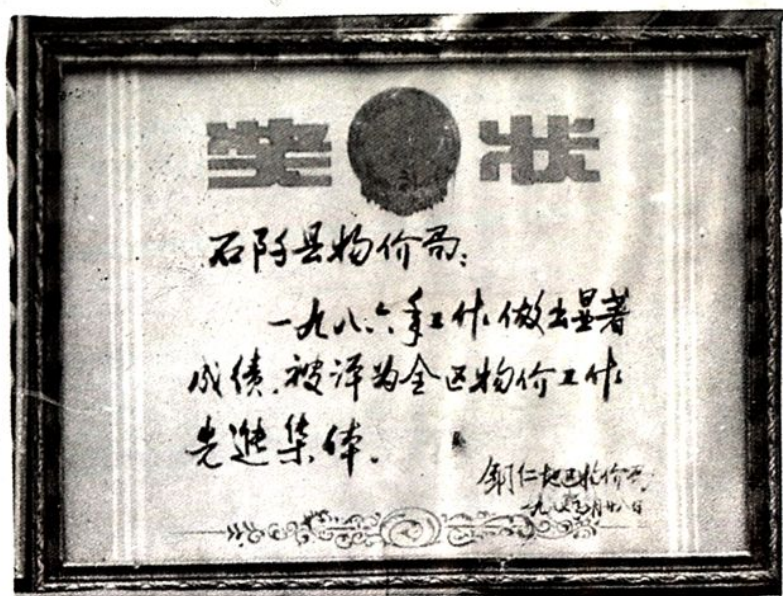 奖状
石阡县物价局：
一九八六年工作做出显著
成绩，被评为全区物价工作
先进集体。
铜仁地区物价局
一九八七年月廿八日